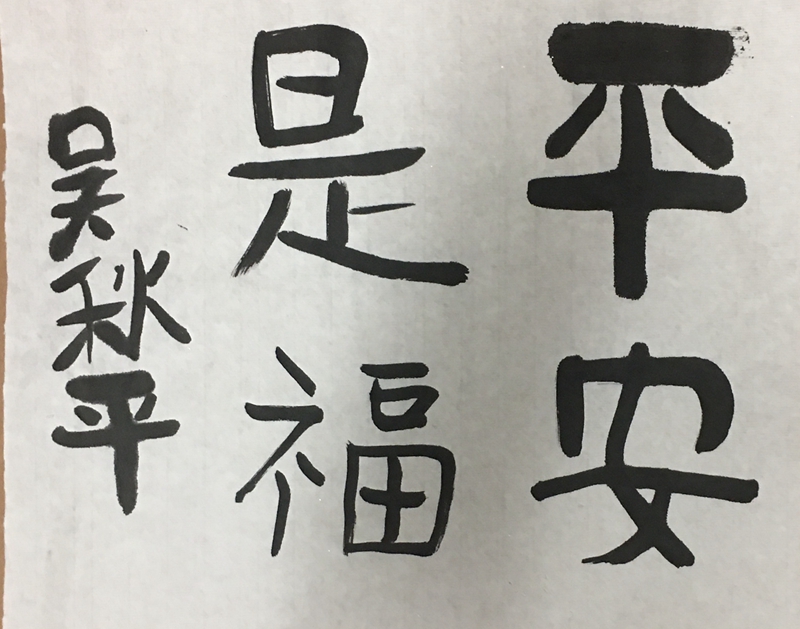 平安
是福
吴秋平